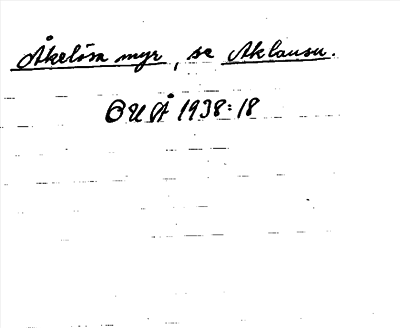 Åkelösa myr, se Aklausu.
GUÅ 1938:18